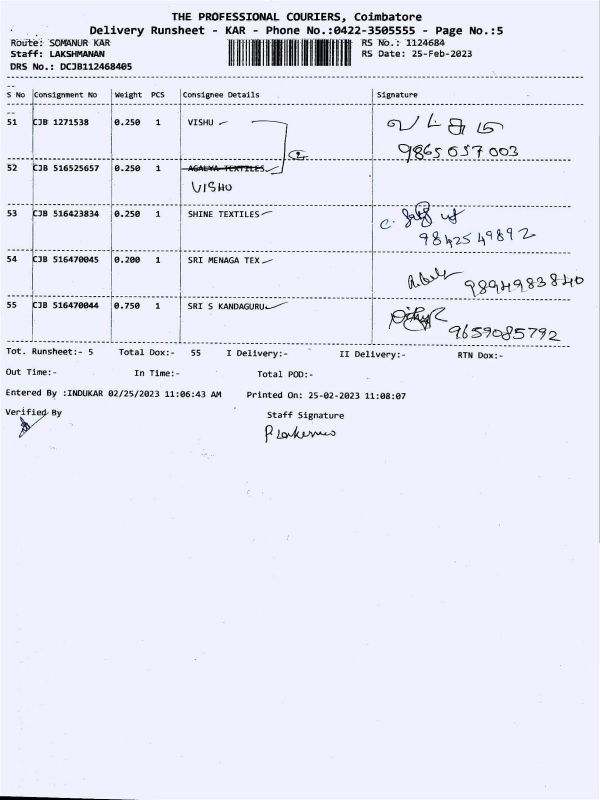 THE PROFESSIONAL COURIERS, Coimbatore
Delivery Runsheet - KAR - Phone No.:0422-3505555 - Page No.:5
Route: SOMANUR KAR RS No.: 1124684
Staff: LAKSHMANAN RS Date: 25-Feb-2023
DRS No.: DCJB112468405
S No Consignment No Weight PCS Consignee Details Signature
51 CJB 1271538 0.250 1 VISHU
9865657003
52 CJB 516525657 0.250 1 AGALYA TEXTILES
VISHU
53 CJB 516423834 0.250 1 SHINE TEXTILES
9842549892
54 CJB 516470045 0.200 1 SRI MENAGA TEX
9894983840
55 CJB 516470044 0.750 1 SRI S KANDAGURU
9659085792
Tot. Runsheet:- 5 Total Dox:- 55 I Delivery:- II Delivery:- RTN Dox:-
Out Time:- In Time:- Total POD:-
Entered By :INDUKAR 02/25/2023 11:06:43 AM Printed On: 25-02-2023 11:08:07
Verified By Staff Signature